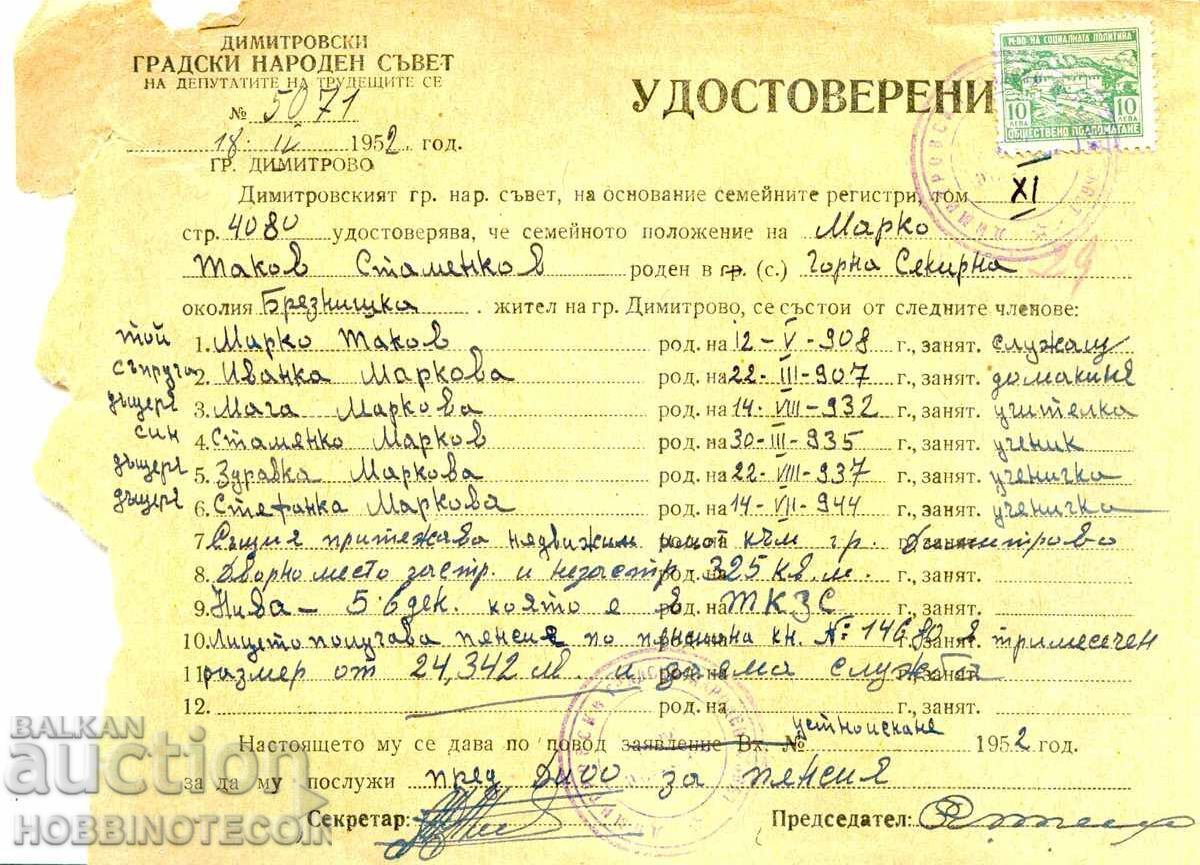 ДИМИТРОВСКИ
ГРАДСКИ НАРОДЕН СЪВЕТ
НА ДЕПУТАТИТЕ НА ТРУДЕЩИТЕ СЕ
№ 5071
18. IV 1952 год.
ГР. ДИМИТРОВО
УДОСТОВЕРЕНИ
М-ВО НА СОЦИАЛНАТА ПОЛИТИКА
10 ЛЕВА 10 ЛЕВА
ОБЩЕСТВЕНО ПОДПОМАГАНЕ
Димитровският гр. нар. съвет, на основание семейните регистри, том XI
стр. 4080 удостоверява, че семейното положение на Марко
Таков Стаменков роден в гр. (с.) Горна Секирна
околия Брезнишка . жител на гр. Димитрово, се състои от следните членове:
той 1. Марко Таков род. на 12-V-908 г., занят. служащ
съпруга 2. Иванка Маркова род. на 22-III-907 г., занят. домакиня
дъщеря 3. Мага Маркова род. на 14-VIII-932 г., занят. учителка
син 4. Стаменко Марков род. на 30-III-935 г., занят. ученик
дъщеря 5. Здравка Маркова род. на 22-VIII-937 г., занят. ученичка
дъщеря 6. Стефанка Маркова род. на 14-VII-944 г., занят. ученичка
7. Същия притежава недвижим имот към гр. Димитрово
8. Дворно место застр. и незастр. род. на 325 кв. м. г., занят.
9. Нива - 5.6 дек. която е в род. на ТКЗС г., занят.
10. Лицето получава пенсия по пенсионна кн. №: 14680 в тримесечен
11. размер от 24,342 лв и заема служба
12. род. на г., занят.
Настоящето му се дава по повод заявление Вх. № устно искане 1952 год.
за да му послужи пред ДИОО за пенсия
Секретар: Председател:
BALKAN
auction
HOBBINOTECOIN